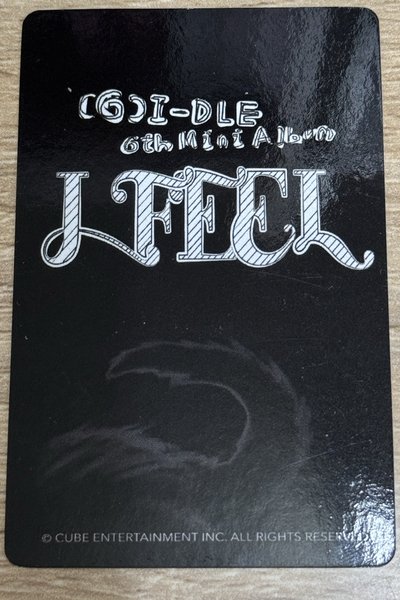 (G)I-DLE
6th Mini Album
I FEEL
© CUBE ENTERTAINMENT INC. ALL RIGHTS RESERVED